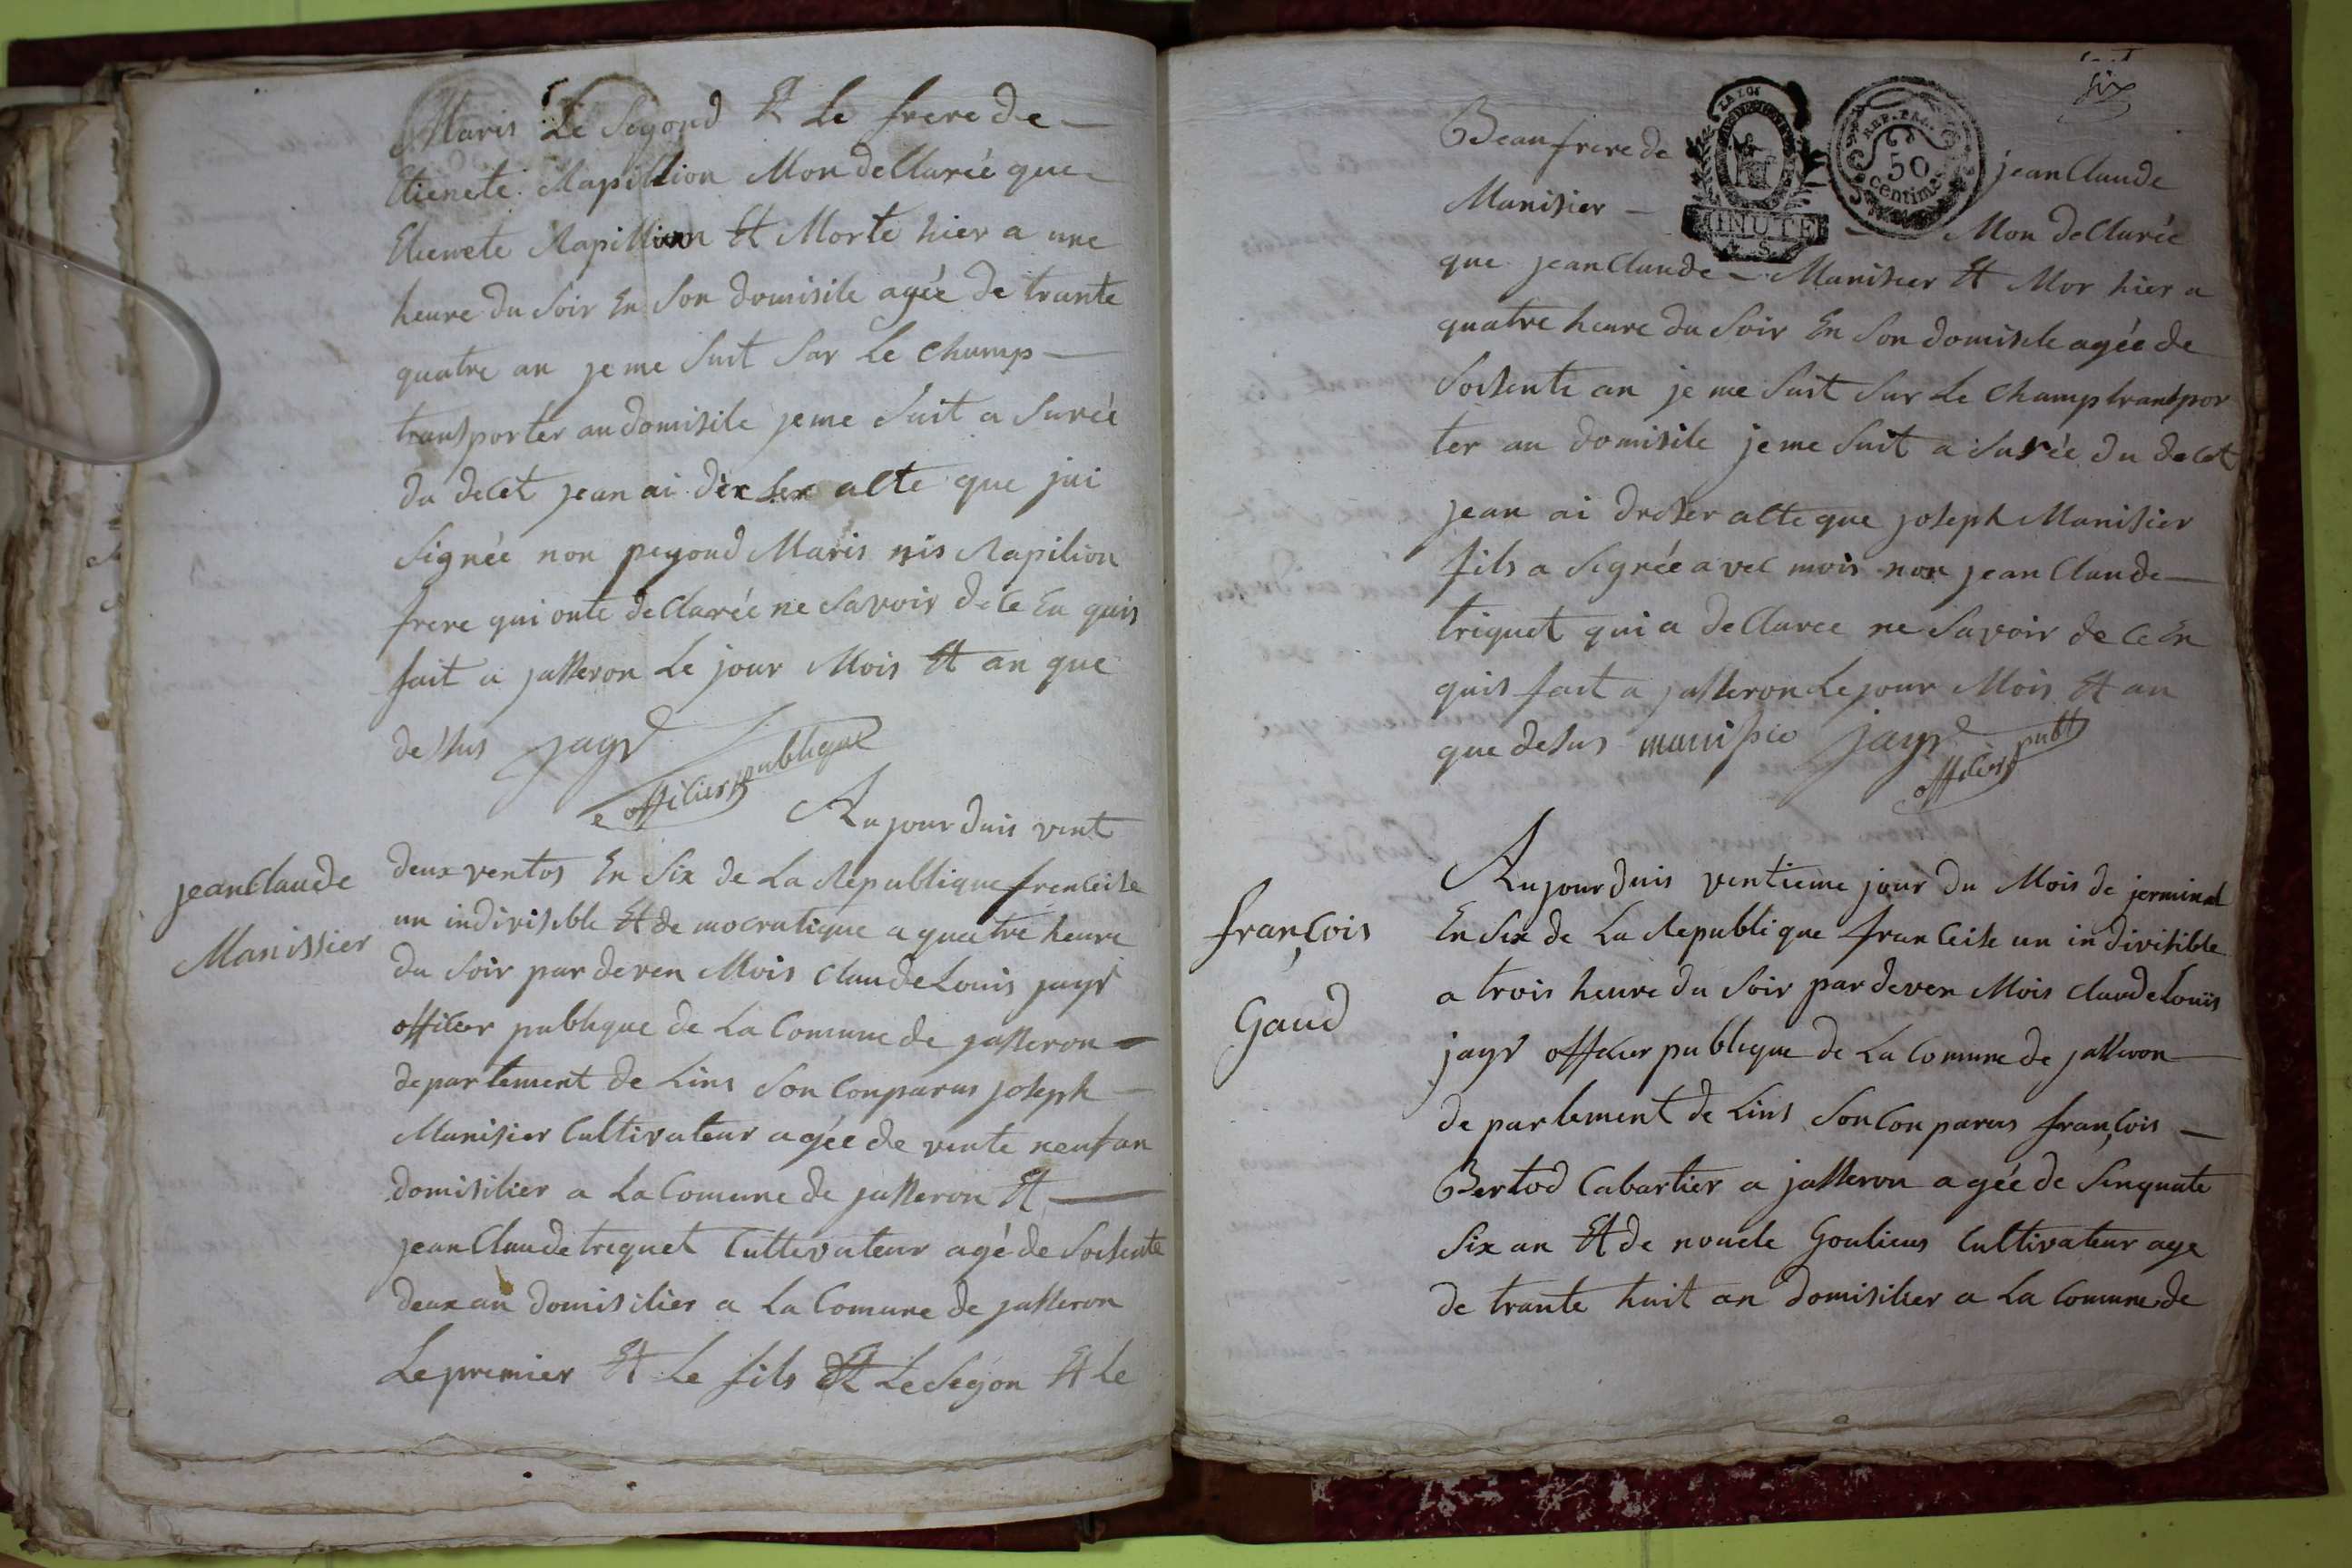 Maris Le Segond Et Le frere de
Etienete Rapillion Mon dellarée que
Etienete Rapillion Et Morte hier a une
heure du Soir En Son domisile agée de trante
quatre an je me Suit Sar Le Champ
transporter au domisile je me Suit a Surée
du decet jean ai dex Ser alte que jai
Signée non pegond Maris nis Rapilion
frere qui onte deClarée ne Savoir de Ce En quis
fait a jasseron Le jour Mois Et an que
dessus jayr
officier publique
Aujourduis vint
jean Claude
Manissier
deux ventos En Six de La Republique frenceise
un indivisible Et de mocratique a quatre heure
du Soir par deven Mois Claude Louis jayr
officer publique de La Comune de jasseron
departement de Lins Son Conparus joseph
Manisier Cultivateur agée de vente neuf an
domisilier a La Comune de jasseron Et
jean Claude trequet Cultevateur agé de Soisente
deux an domisilier a La Comune de jasseron
Le premier Et Le fils Et Le Segon Et Le
Six
Beaufrere de jean Claude
LA LOI
MINUTE
REP. FRA.
50
centimes
Manisier Mon deClarée
que jean Claude Manisier Et Mor hier a
quatre heure du Soir En Son domisile agée de
Soisente an je me Suit Sur Le Champ transpor
ter au domisile je me Suit a Surée du decet
jean ai dreser alte que joseph Manisier
fils a Signée avec mois non jean Claude
triquet qui a deClaree ne Savoir de Ce En
quis fait a jasseron Le jour Mois Et an
que desus manisie jayr
officier publ
françois
Gaud
Aujourduis ventieme jour du Mois de jerminal
En Six de La Republique franceise un indivisible
a trois heure du Soir par deven Mois Claude Louis
jayr officier publique de La Comune de jasseron
de partement de Lins Son Conparus françois
Bertod Cabartier a jasseron agée de Sinquate
Six an Et de nouele Goulieus Cultivateur age
de trante huit an domisilier a La Comune de